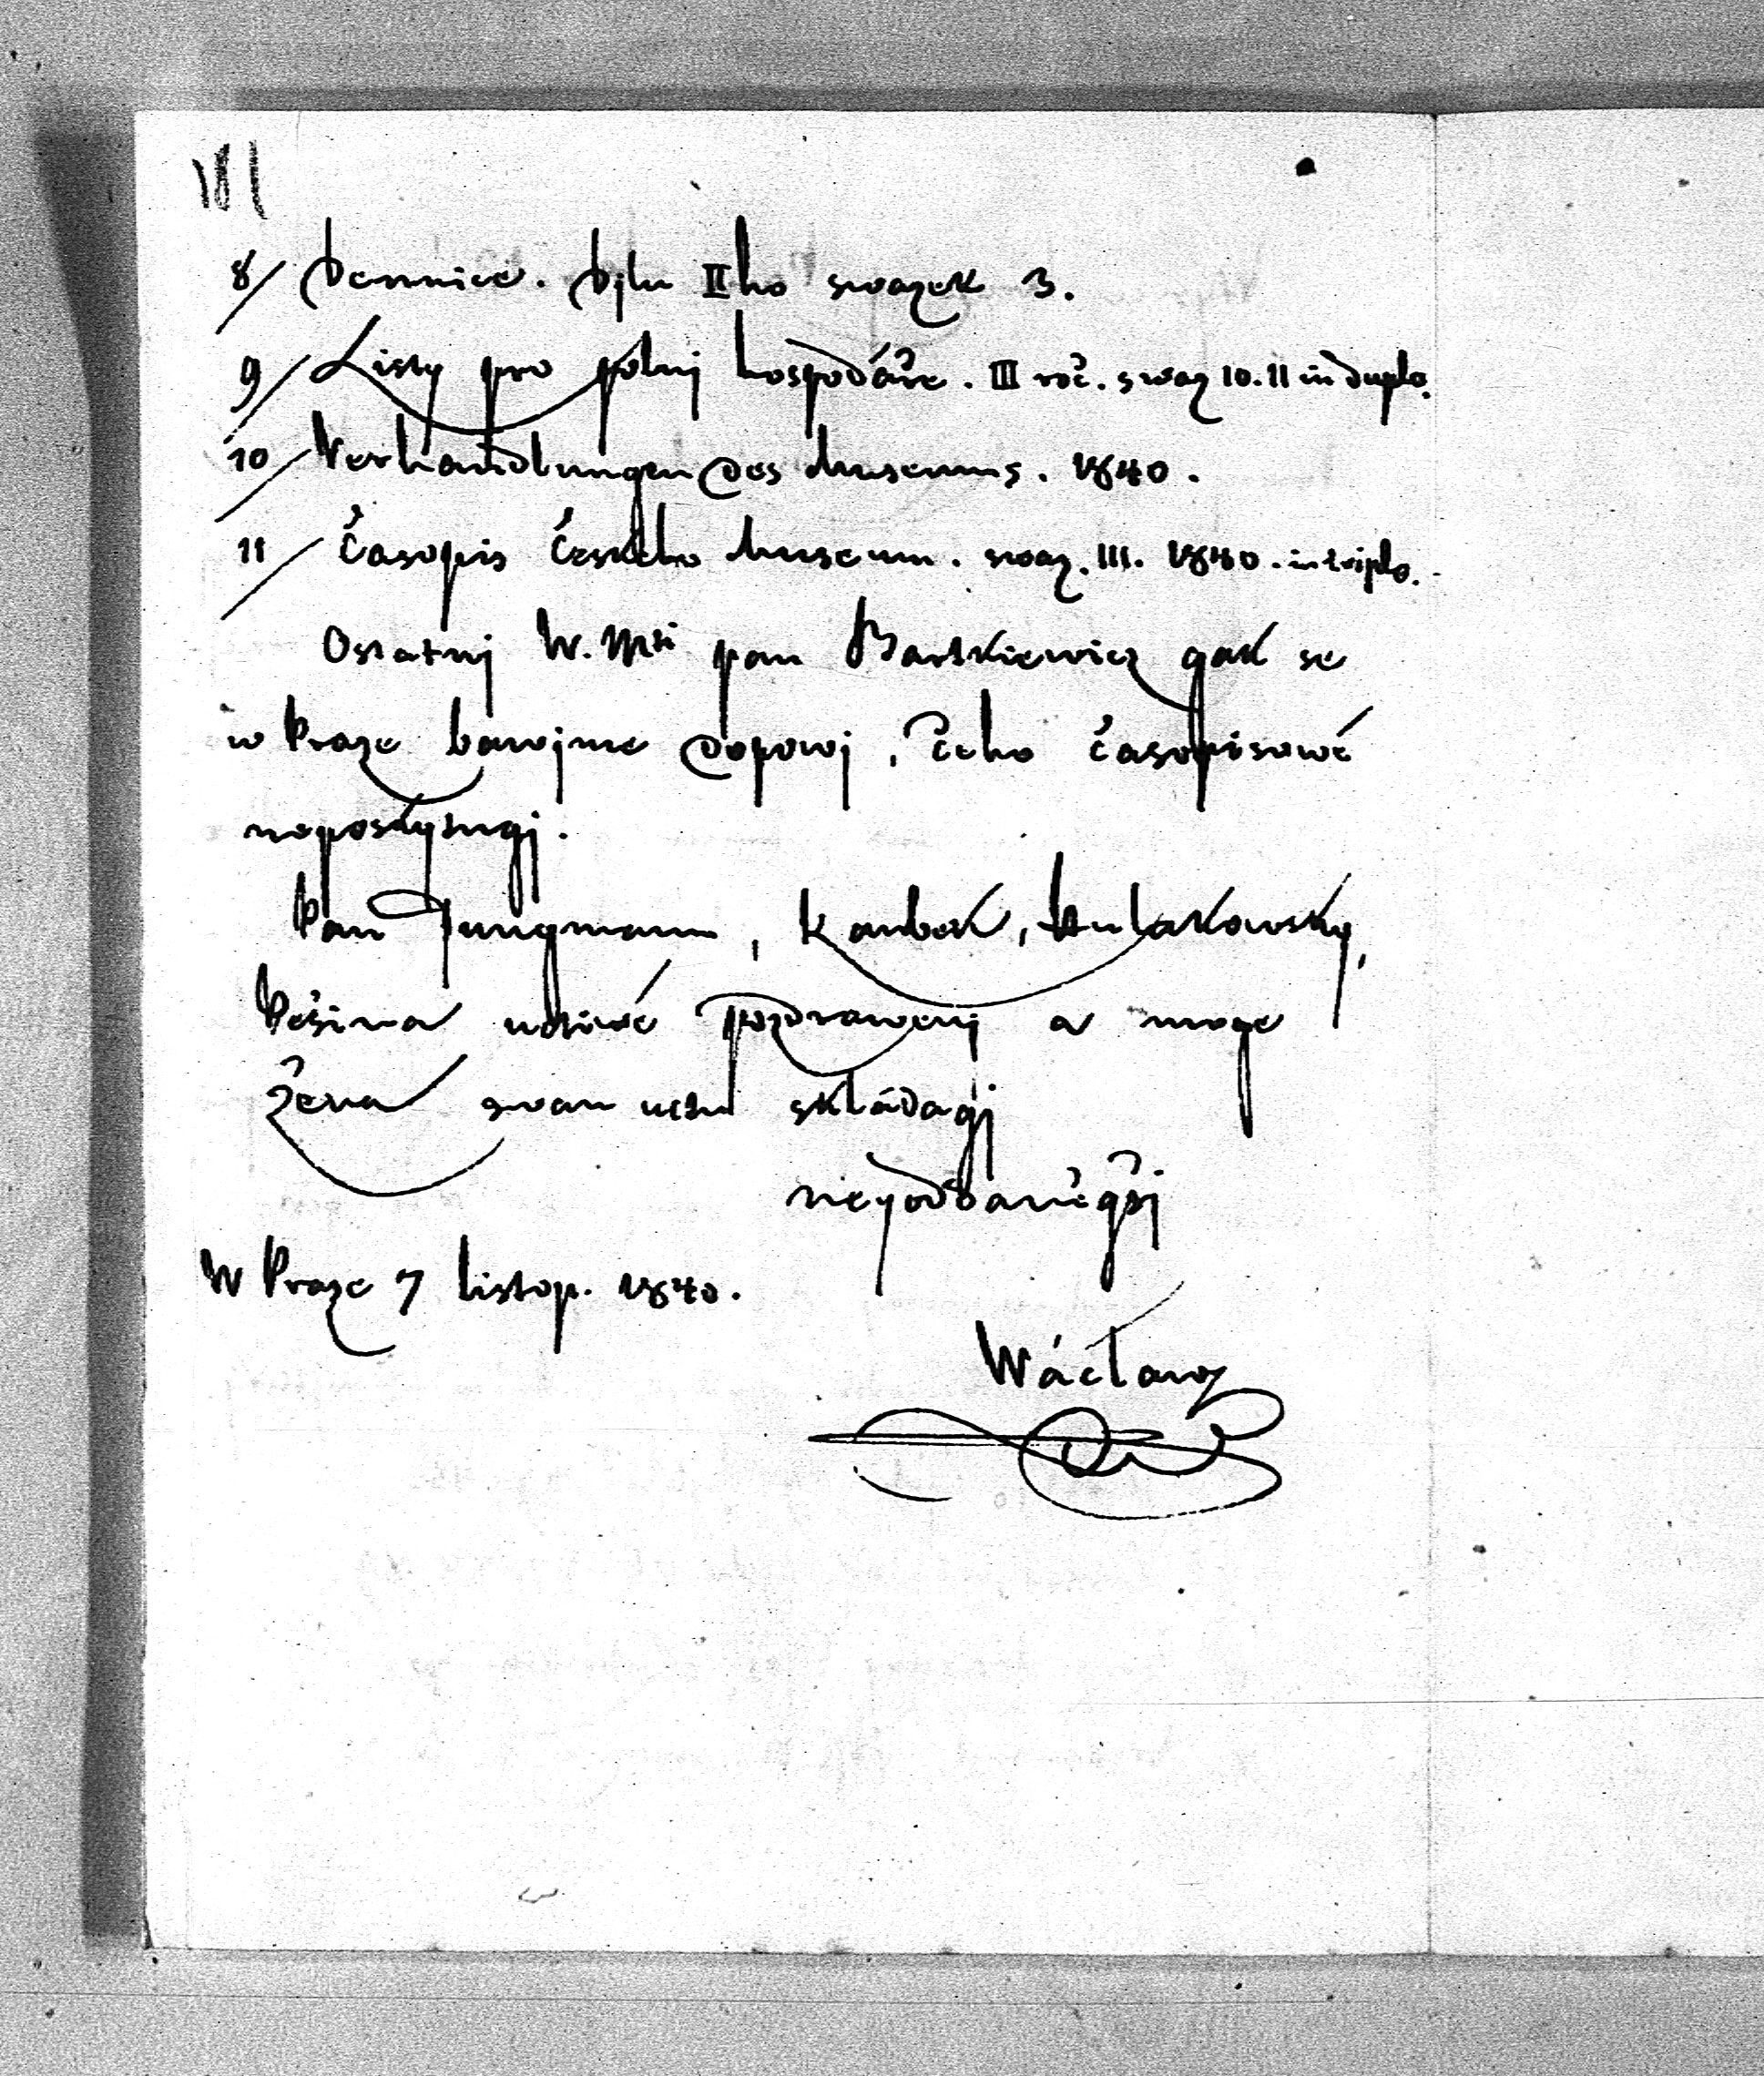 181
8/ Dennice. Djlu IIho swazek 3.
9/ Listy pro polnj hospodáře. III roč. swaz 10. 11 in duplo.
10/ Verhandlungen des Museums. 1840.
11/ Časopis Českého Museum. swaz. III. 1840. in triplo.
Ostatnj W. Msti pan Bartkiewicz gak se
w Praze bawjme dopowj, čeho časopisowé
neposkytugj.
Pan Jungmann, Kaubek, Kulakowský,
Pešina uctiwé pozdrawenj a moge
žena swau uctu skládagj
neyoddaněgšj
W Praze 7 listop. 1840.
Wácław